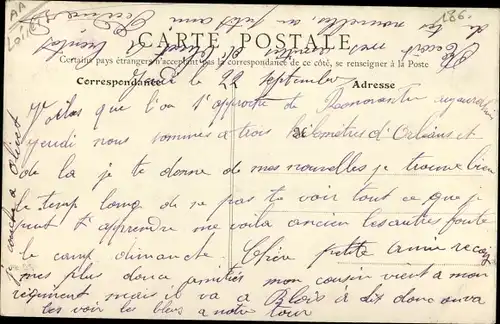 186.
CARTE POSTALE
Certains pays étrangers n'acceptant pas la correspondance de ce côté, se renseigner à la Poste
Correspondance
Adresse
Jeudi le 22 septembre
Voilas que l'on s'approche de Romorantin aujourd'hui
jeudi nous sommes a trois kilometres d'Orléans et
de la je te donne de mes nouvelles je trouve bien
le temp long de ne pas te voir tout ce que je
peut t'apprendre me voila ancien les autres foute
le camp dimanche Chère petite amie reçoi
mes plus douce amitiés mon cousin vient a mon
régiment mais il va a Blois à dit donc on va
les voir les bleus a notre tour
je couche a Olivet